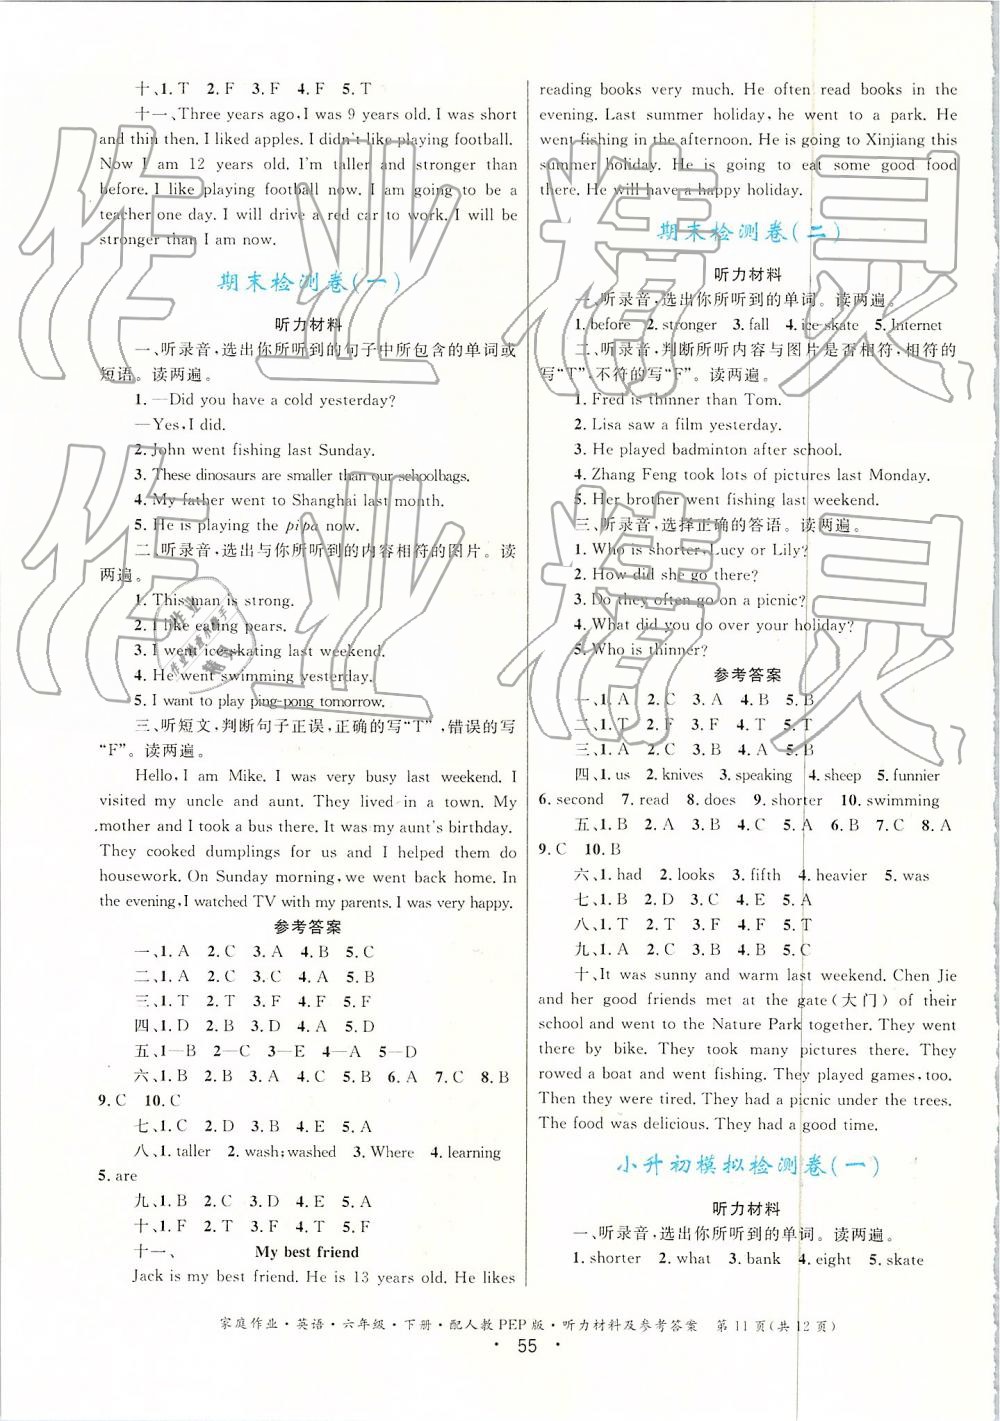 十、1. T 2. F 3. F 4. F 5. T
十一、Three years ago, I was 9 years old. I was short
and thin then. I liked apples. I didn't like playing football.
Now I am 12 years old. I'm taller and stronger than
before. I like playing football now. I am going to be a
teacher one day. I will drive a red car to work. I will be
stronger than I am now.
期末检测卷(一)
听力材料
一、听录音,选出你所听到的句子中所包含的单词或
短语。读两遍。
1. —Did you have a cold yesterday?
—Yes, I did.
2. John went fishing last Sunday.
3. These dinosaurs are smaller than our schoolbags.
4. My father went to Shanghai last month.
5. He is playing the pipa now.
二、听录音,选出与你所听到的内容相符的图片。读
两遍。
1. This man is strong.
2. I like eating pears.
3. I went ice-skating last weekend.
4. He went swimming yesterday.
5. I want to play ping-pong tomorrow.
三、听短文,判断句子正误,正确的写“T”,错误的写
“F”。读两遍。
Hello, I am Mike. I was very busy last weekend. I
visited my uncle and aunt. They lived in a town. My
mother and I took a bus there. It was my aunt's birthday.
They cooked dumplings for us and I helped them do
housework. On Sunday morning, we went back home. In
the evening, I watched TV with my parents. I was very happy.
参考答案
一、1. A 2. C 3. A 4. B 5. C
二、1. A 2. C 3. C 4. A 5. B
三、1. T 2. T 3. F 4. F 5. T
四、1. D 2. B 3. D 4. A 5. D
五、1—B 2—C 3—E 4—A 5—D
六、1. B 2. A 3. C 4. C 5. B 6. A 7. C 8. B
9. C 10. C
七、1. C 2. D 3. B 4. E 5. A
八、1. taller 2. wash; washed 3. Where 4. learning
5. are
九、1. B 2. C 3. D 4. E 5. A
十、1. F 2. T 3. F 4. T 5. F
十一、 My best friend
Jack is my best friend. He is 13 years old. He likes
reading books very much. He often read books in the
evening. Last summer holiday, he went to a park. He
went fishing in the afternoon. He is going to Xinjiang this
summer holiday. He is going to eat some good food
there. He will have a happy holiday.
期末检测卷(二)
听力材料
一、听录音,选出你所听到的单词。读两遍。
1. before 2. stronger 3. fall 4. ice-skate 5. Internet
二、听录音,判断所听内容与图片是否相符,相符的
写“T”,不符的写“F”。读两遍。
1. Fred is thinner than Tom.
2. Lisa saw a film yesterday.
3. He played badminton after school.
4. Zhang Feng took lots of pictures last Monday.
5. Her brother went fishing last weekend.
三、听录音,选择正确的答语。读两遍。
1. Who is shorter, Lucy or Lily?
2. How did she go there?
3. Do they often go on a picnic?
4. What did you do over your holiday?
5. Who is thinner?
参考答案
一、1. A 2. C 3. A 4. B 5. B
二、1. T 2. F 3. F 4. T 5. T
三、1. A 2. C 3. B 4. A 5. B
四、1. us 2. knives 3. speaking 4. sheep 5. funnier
6. second 7. read 8. does 9. shorter 10. swimming
五、1. B 2. A 3. B 4. C 5. A 6. B 7. C 8. A
9. C 10. B
六、1. had 2. looks 3. fifth 4. heavier 5. was
七、1. B 2. D 3. C 4. E 5. A
八、1. T 2. T 3. F 4. F 5. T
九、1. C 2. A 3. A 4. C 5. B
十、It was sunny and warm last weekend. Chen Jie
and her good friends met at the gate(大门) of their
school and went to the Nature Park together. They went
there by bike. They took many pictures there. They
rowed a boat and went fishing. They played games, too.
Then they were tired. They had a picnic under the trees.
The food was delicious. They had a good time.
小升初模拟检测卷(一)
听力材料
一、听录音,选出你所听到的单词。读两遍。
1. shorter 2. watch 3. bank 4. eight 5. skate
家庭作业·英语·六年级·下册·配人教PEP版·听力材料及参考答案 第11页(共12页)
·55·
作业精灵
作业精灵